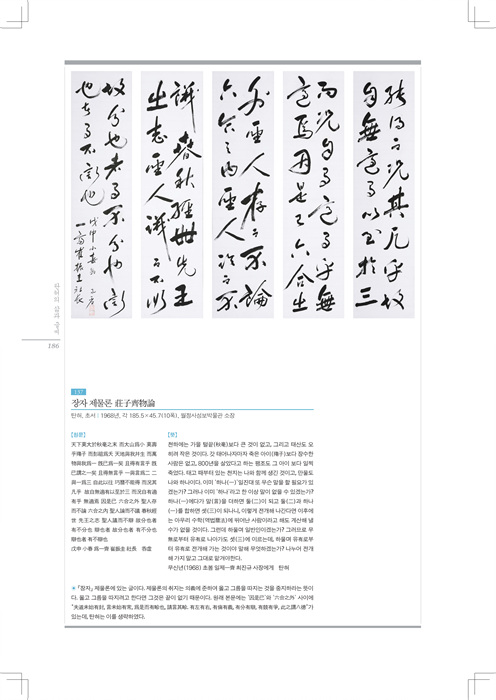 能得而況其凡乎故
自無適有以至於三
而況自有適有乎無
適焉因是已六合之
外聖人存而不論
六合之內聖人論而不
議春秋經世先王
之志聖人議而不辯
故分也者有不分也辯
也者有不辯也
탄허의
186
137
장자 제물론 莊子齊物論
탄허, 초서 | 1968년, 각 185.5×45.7(10폭), 월정사성보박물관 소장
【원문】
天下莫大於秋毫之末 而大山爲小 莫壽
乎殤子 而彭祖爲夭 天地與我幷生 而萬
物與我爲一 旣已爲一矣 且得有言乎 旣
已謂之一矣 且得無言乎 一與言爲二 二
與一爲三 自此以往 巧曆不能得 而況其
凡乎 故自無適有以至於三 而況自有適
有乎 無適焉 因是已 六合之外 聖人存
而不論 六合之內 聖人論而不議 春秋經
世 先王之志 聖人議而不辯 故分也者
有不分也 辯也者 故分也者 有不分也
辯也者 有不辯也
戊申 小春 爲 一齊 崔振圭 社長 呑虛
【뜻】
천하에는 가을 털끝(秋毫)보다 큰 것이 없고, 그리고 태산도 오
히려 작은 것이다. 갓 태어나자마자 죽은 아이(殤子)보다 장수한
사람은 없고, 800년을 살았다고 하는 팽조도 그 아이 보다 일찍
죽었다. 태고 때부터 있는 천지는 나와 함께 생긴 것이고, 만물도
나와 하나이다. 이미 ‘하나(一)’일진대 또 무슨 말을 할 필요가 있
겠는가? 그러나 이미 ‘하나’라고 한 이상 말이 없을 수 있겠는가?
하나(一)에다가 말(言)을 더하면 둘(二)이 되고 둘(二)과 하나
(一)를 합하면 셋(三)이 되나니, 이렇게 전개해 나간다면 이후에
는 아무리 수학(역법曆法)에 뛰어난 사람이라고 해도 계산해 낼
수가 없을 것이다. 그런데 하물며 일반인이겠는가? 그러므로 무
無로부터 유有로 나아가도 셋(三)에 이르는데, 하물며 유有로부
터 유有로 전개해 가는 것이야 말해 무엇하겠는가? 나누어 전개
해 가지 말고 그대로 맡겨야한다.
무신년(1968) 초봄 일제一齊 최진규 사장에게 탄허
★『장자』 제물론에 있는 글이다. 제물론의 취지는 의義에 준하여 옳고 그름을 따지는 것을 중지하라는 뜻이
다. 옳고 그름을 따지려고 한다면 그것은 끝이 없기 때문이다. 원래 본문에는 ‘因是已’와 ‘六合之外’ 사이에
“夫道未始有封, 言未始有常, 爲是而有畛也, 請言其畛. 有左有右, 有倫有義, 有分有辯, 有競有爭, 此之謂八德”가
있는데, 탄허는 이를 생략하였다.